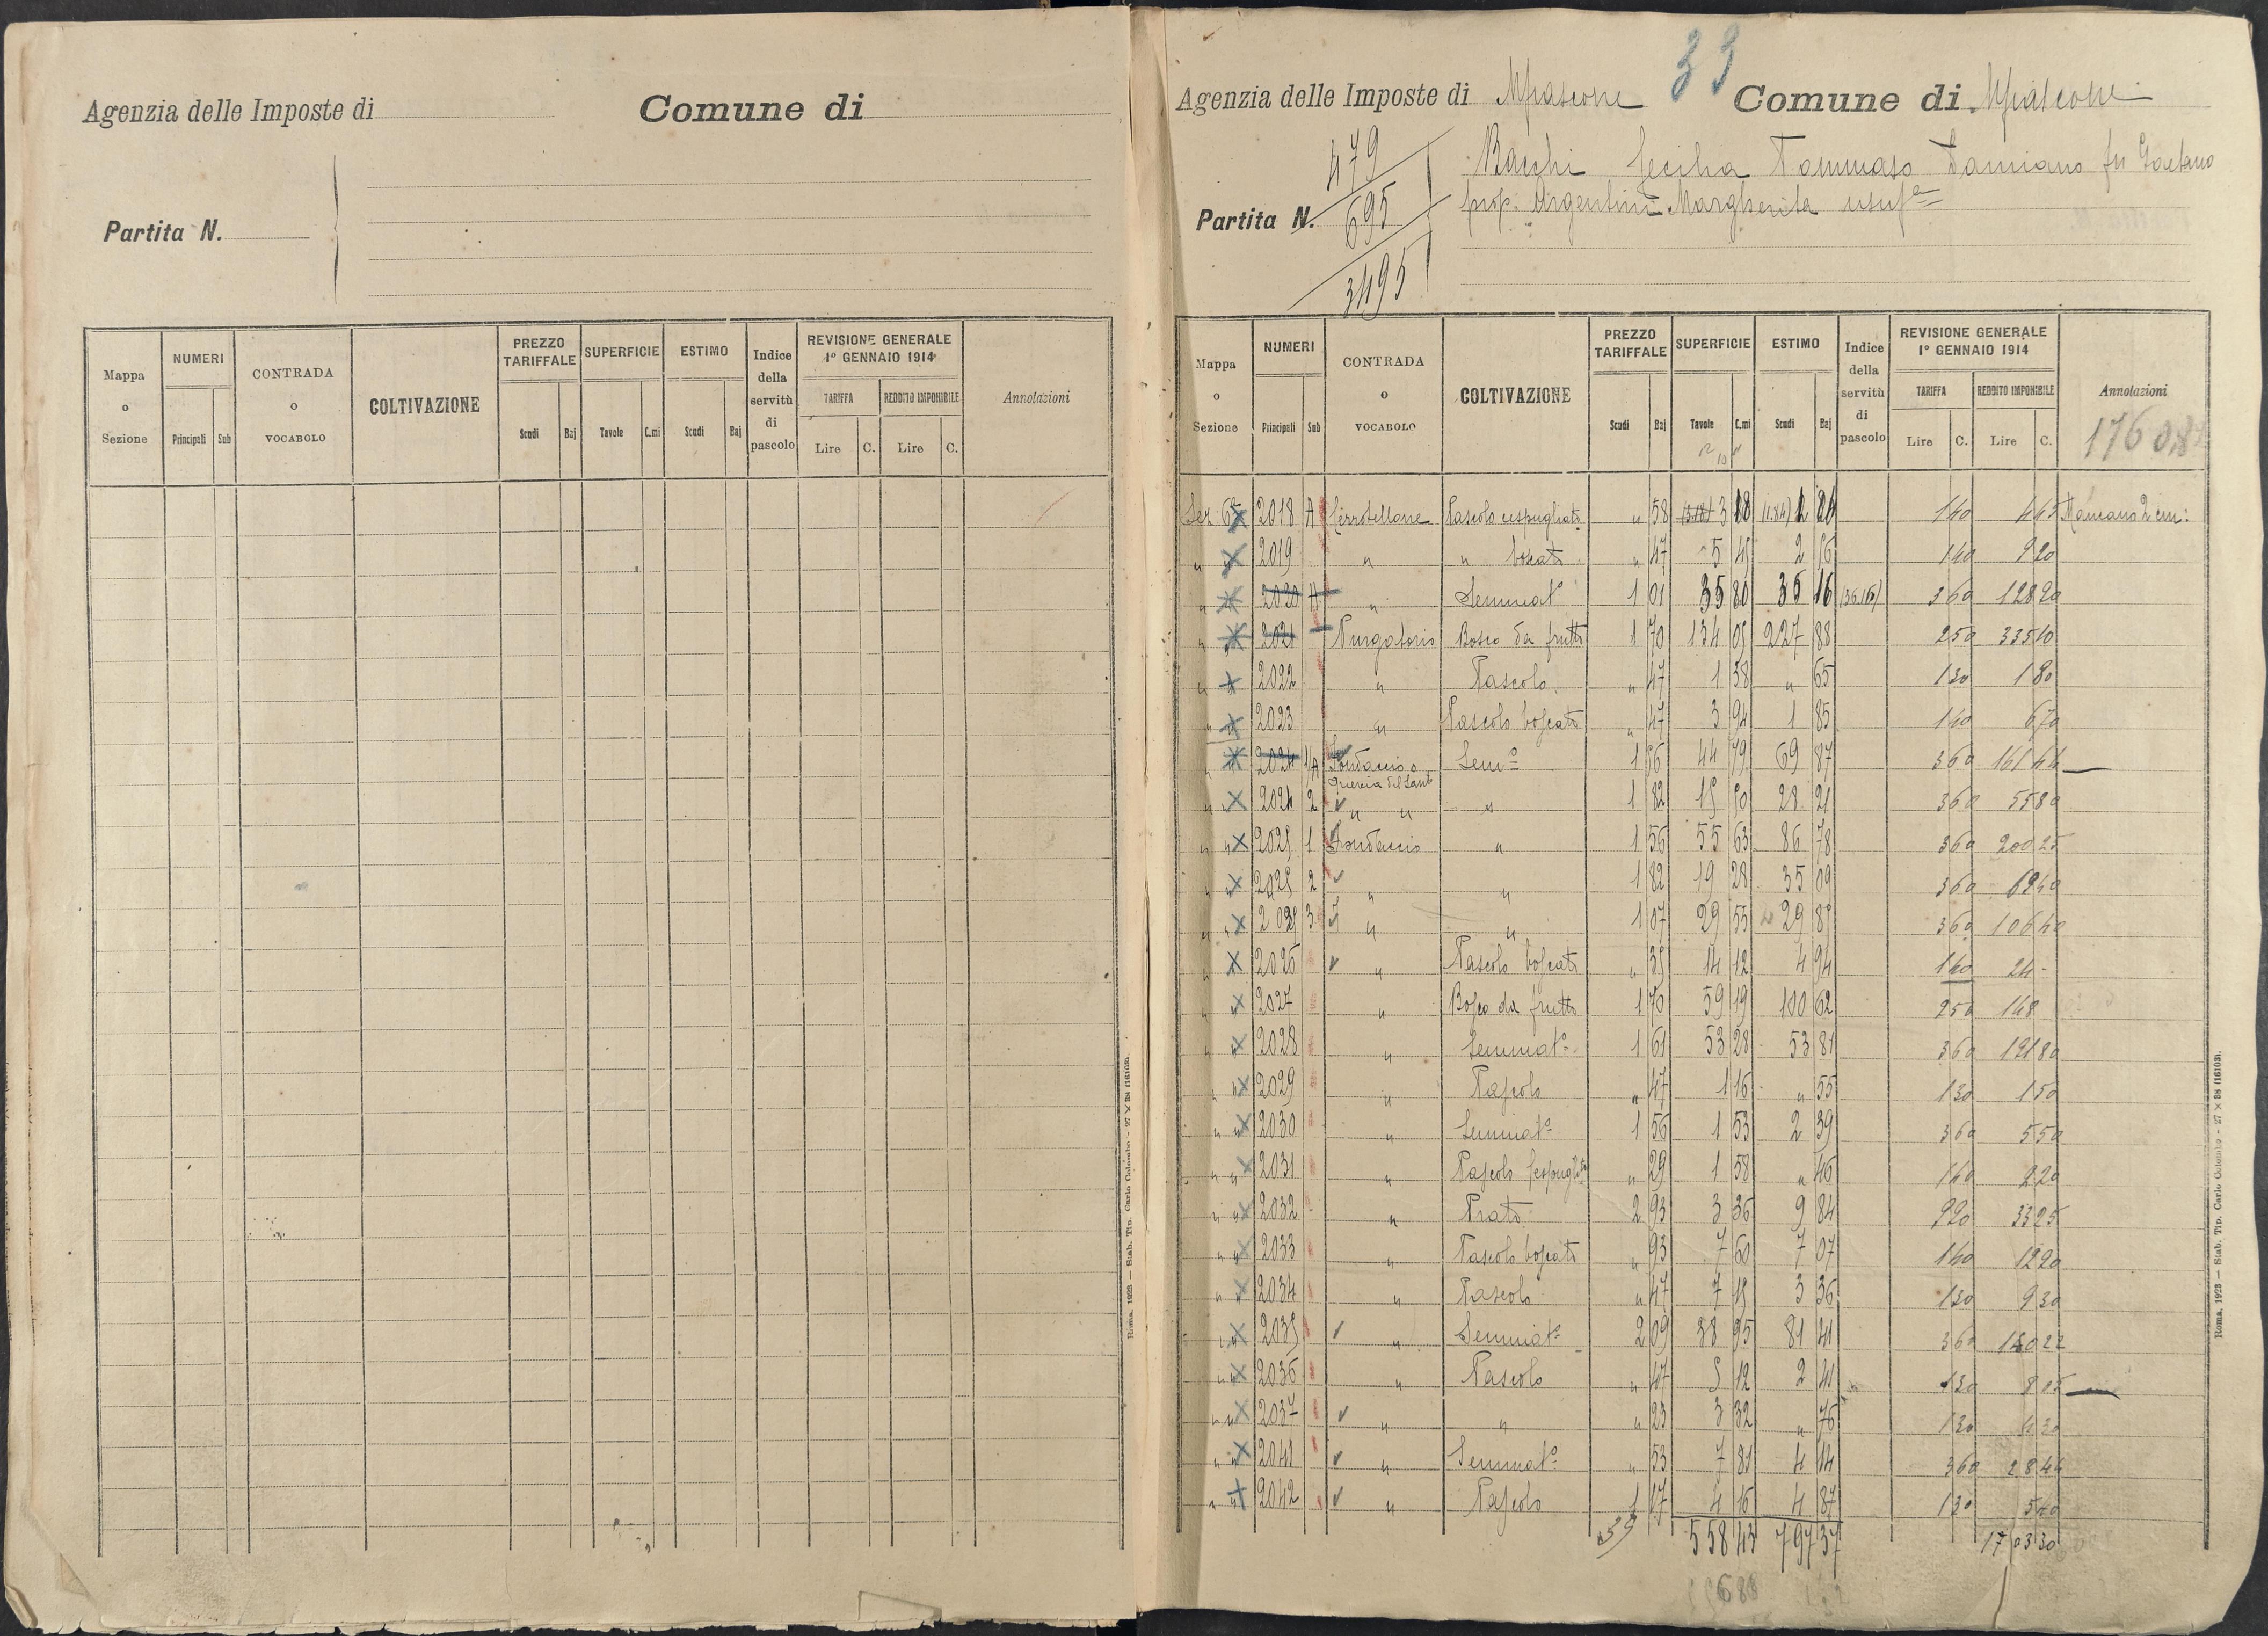 Agenzia delle Imposte di
Comune di
Partita N.
Mappa o Sezione
NUMERI
Principali
Sub
CONTRADA o VOCABOLO
COLTIVAZIONE
PREZZO TARIFFALE
Scudi
Baj
SUPERFICIE
Tavole
C.mi
ESTIMO
Scudi
Baj
Indice della servitù di pascolo
REVISIONE GENERALE
1° GENNAIO 1914
TARIFFA
Lire
C.
REDDITO IMPONIBILE
Lire
C.
Annotazioni
Roma, 1923 — Stab. Tip. Carlo Colombo - 27 × 38 (16103).
33
Agenzia delle Imposte di
Comune di
479
695
3495
Partita N.
Bacchi Cecilia Tommaso Damiano fu Gaetano
prop. Argentini Margherita usufª
Mappa o Sezione
NUMERI
Principali
Sub
CONTRADA o VOCABOLO
COLTIVAZIONE
PREZZO TARIFFALE
Scudi
Baj
SUPERFICIE
Tavole
C.mi
ESTIMO
Scudi
Baj
Indice della servitù di pascolo
REVISIONE GENERALE
1° GENNAIO 1914
TARIFFA
Lire
C.
REDDITO IMPONIBILE
Lire
C.
Annotazioni
Sez 6ª 2018 A Cerrotellone Pascolo cespugliato " 58 3 18 140 Mancano 2 cmi
" " 2019 " " boscato " 47 5 45 2 56 140 920
" " 2020 A " Seminatº 1 01 35 80 36 16 (36.16) 360 12820
" " 2021 Purgatorio Bosco da frutto 1 70 134 05 227 88 250 33510
" " 2022 " Pascolo " 47 1 38 " 65 130 180
" " 2023 " Pascolo boscato " 47 3 94 1 85 140 670
" " 2024 1/A Fondaccio o Quercia del Santo Semº 1 56 44 79 69 87 360 16144
" " 2024 2 " " " 1 82 15 50 28 21 360 5580
" " 2025 1 Fondaccio " 1 56 55 63 86 78 360 20025
" " 2025 2 " " 1 82 19 28 35 09 360 6940
" " 3 " " 1 07 29 55 29 360 10640
" " 2026 " Pascolo boscato " 35 14 12 4 94 24 -
" " 2027 " Bosco da frutto 1 70 59 19 100 62 250 148
" " 2028 " Seminatº 1 61 53 28 53 81 360 19180
" " 2029 " Pascolo " 47 1 16 " 55 130 150
" " 2030 " Seminatº 1 56 1 53 2 39 360 550
" " 2031 " Pascolo cespuglto " 29 1 58 " 46 140 220
" " 2032 " Prato 2 93 3 36 9 84 3325
" " 2033 " Pascolo boscato " 93 7 60 7 07 140
" " 2034 " Pascolo " 47 7 15 3 36 130 930
" " 2035 " Seminatº 2 09 38 95 81 41 360
" " 2036 " Pascolo " 47 5 12 2 41 130
" " 2037 " " " 23 3 32 " 76 130 430
" " 2041 " Seminatº " 53 7 81 4 14 360
" " 2042 " Pascolo 1 17 4 16 4 87 130 540
39 558 43 797 37 170330
Roma, 1923 — Stab. Tip. Carlo Colombo - 27 × 38 (16103).